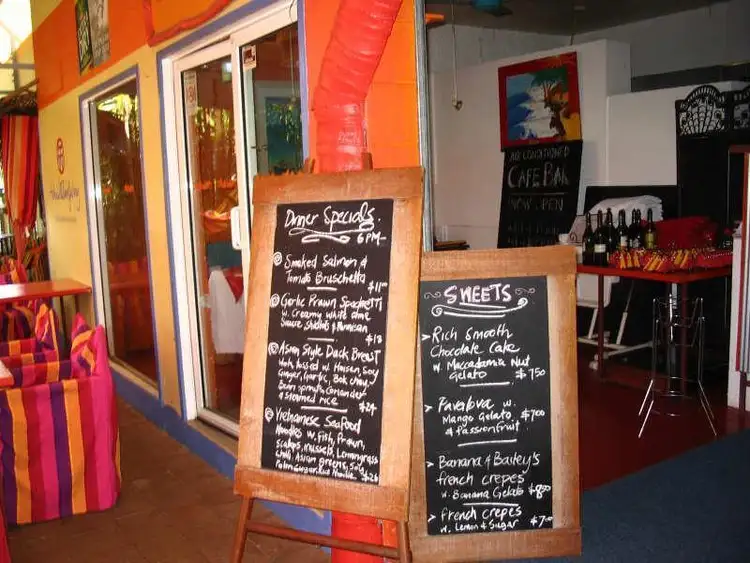 Dinner Specials
6PM-
Smoked Salmon &
Tomato Bruschetta
$11
Garlic Prawn Spaghetti
w. Creamy white wine
Sauce, Shallots & Parmesan
$18
Asian Style Duck Breast
tossed w. Hoisen, Soy
Ginger, Garlic, Bok choy
Bean sprouts, Coriander
& steamed rice $24
Vietnamese Seafood
Noodles w. Fish, Prawn,
Mussels, Lemongrass
Chilli, Asian greens, Soy
Palm Sugar $26
SWEETS
Rich Smooth
Chocolate Cake
w. Macadamia Nut
Gelato $7.50
Pavalova w.
Mango Gelato $7.00
& Passionfruit
Banana & Bailey's
french crepes
w. Banana Gelato $8.00
french crepes
w. Lemon & Sugar $7.00
AIR CONDITIONED
CAFE BAR
NOW OPEN